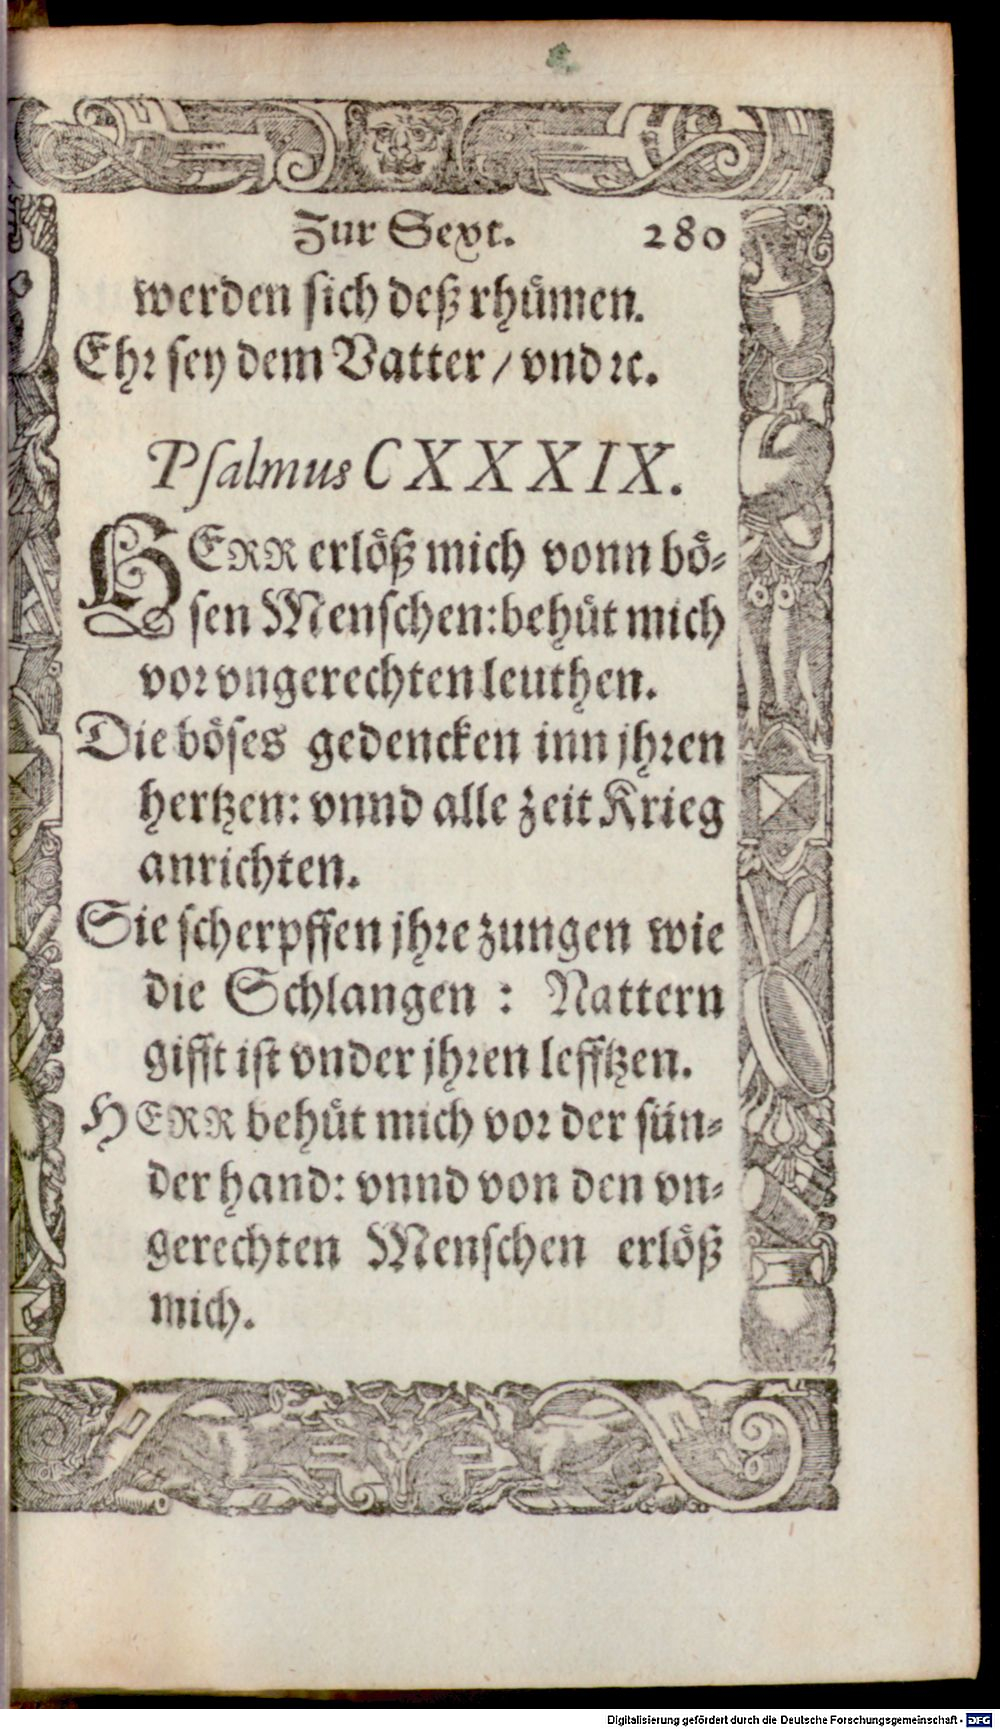 Zur Sext. 280
werden sich deß rhümen.
Ehr sey dem Vatter / vnd ꝛc.
Psalmus CXXXIX.
HERR erlöß mich vonn bö-
sen Menschen: behüt mich
vor vngerechten leuthen.
Die böses gedencken inn jhren
hertzen: vnnd alle zeit Krieg
anrichten.
Sie scherpffen jhre zungen wie
die Schlangen : Nattern
gifft ist vnder jhren lefftzen.
HERR behüt mich vor der sün-
der hand: vnnd von den vn-
gerechten Menschen erlöß
mich.
Digitalisierung gefördert durch die Deutsche Forschungsgemeinschaft - DFG